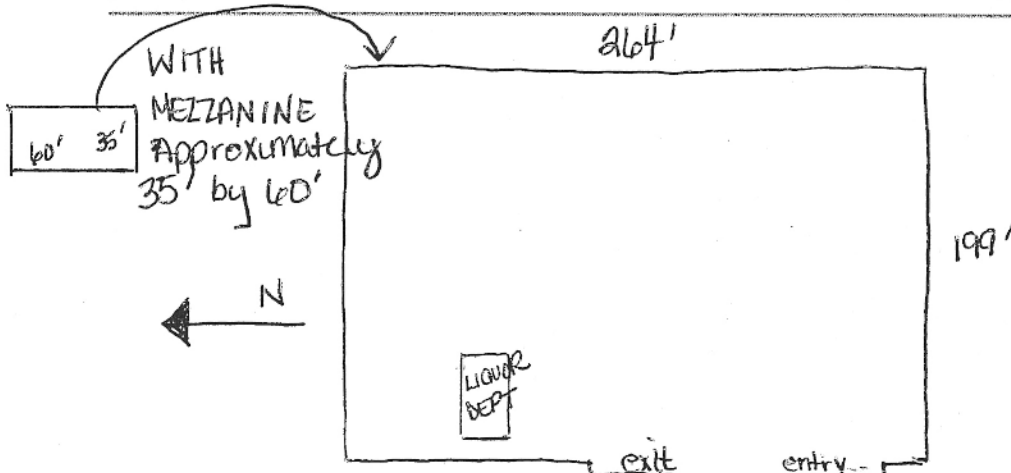 264'
WITH
MEZZANINE
Approximately
35' by 60'
60' 35'
199'
N
LIQUOR
DEPT
exit entry